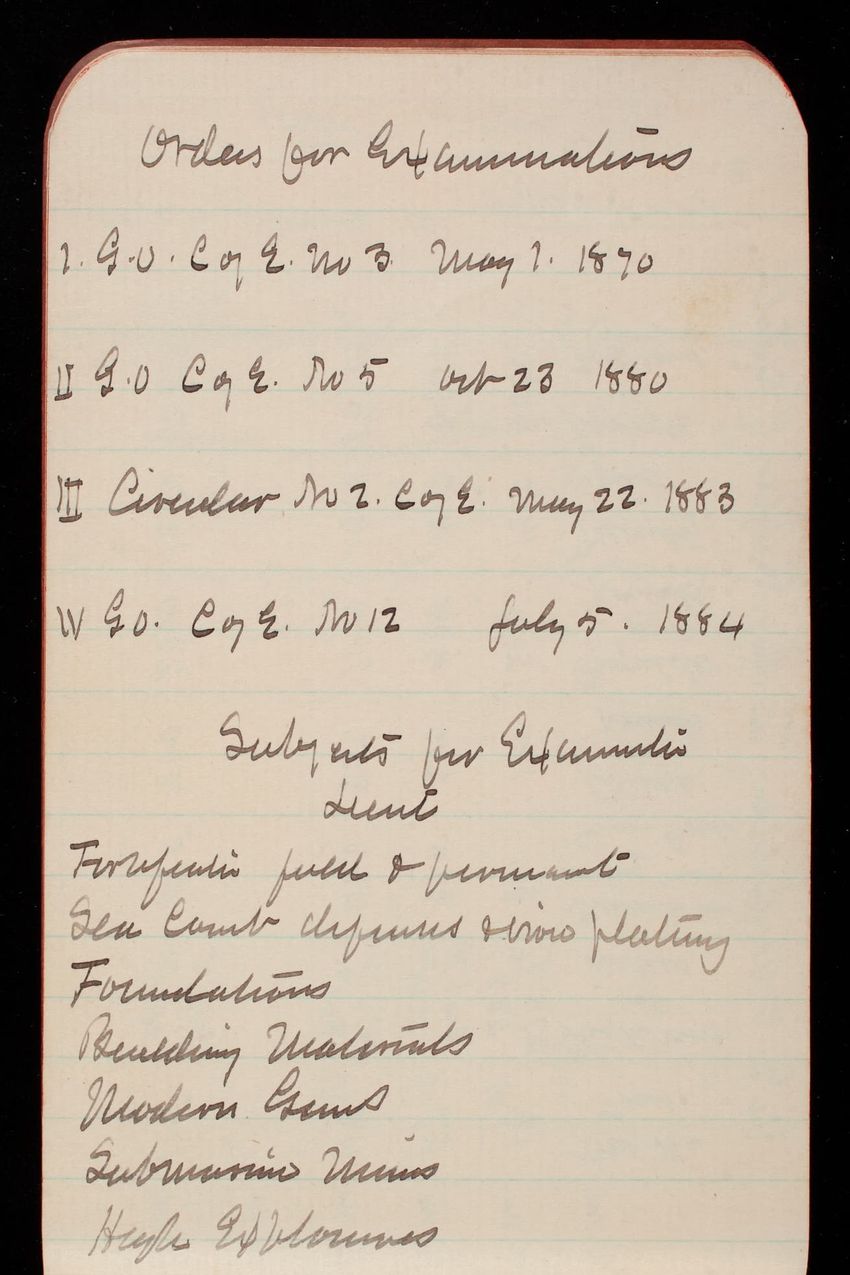 Orders for Examinations
I. G.O. C of E. No 3 May 1. 1870
II G.O C of E. No 5 Oct 23 1880
III Circular No 2. C of E. May 22. 1883
IV G O. C of E. No 12 July 5. 1884
Subjects for Examinatio
Lieut
Fortificatio field & permanent
Sea Coast defenses & iron plating
Foundations
Building Materials
Modern Guns
Submarine Mines
High Explosives